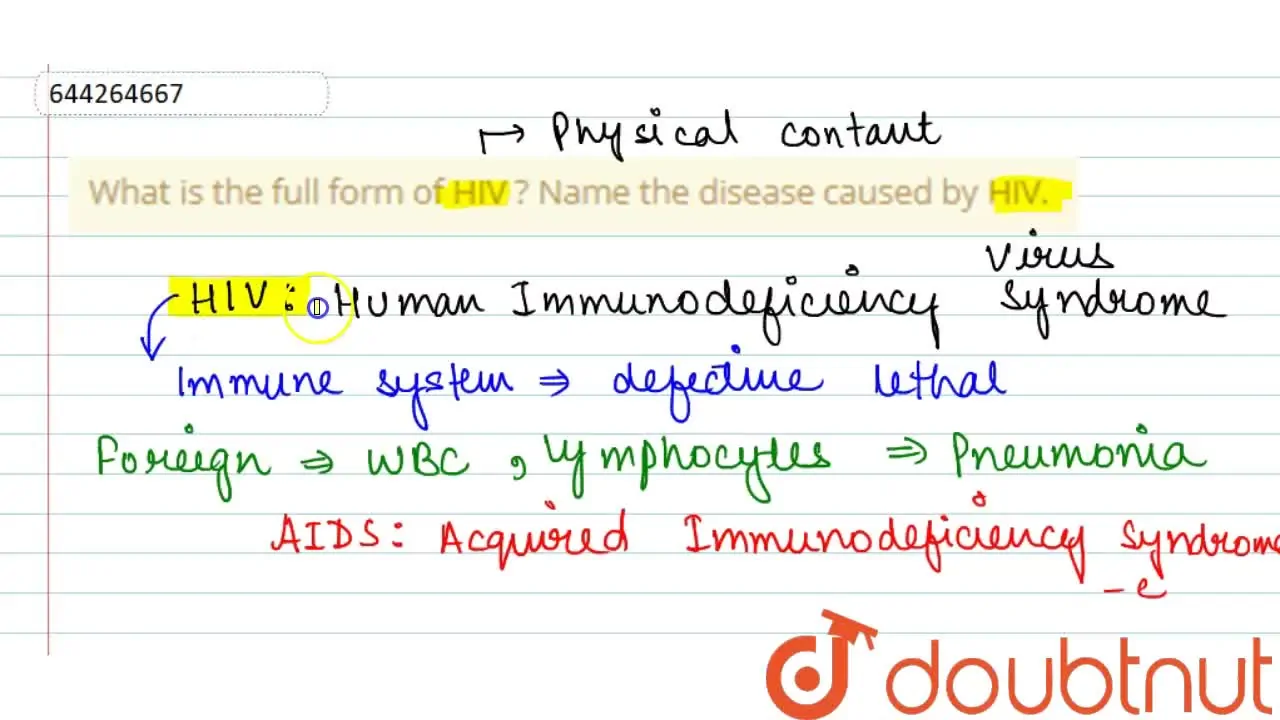 644264667
↦ Physical contaut
What is the full form of HIV ? Name the disease caused by HIV.
Virus
HIV : Human Immunodeficiency Syndrome
Immune system ⇒ defective lethal
Foreign ⇒ WBC , lymphocytes ⇒ Pneumonia
AIDS : Acquired Immunodeficiency Syndrome
- e
doubtnut